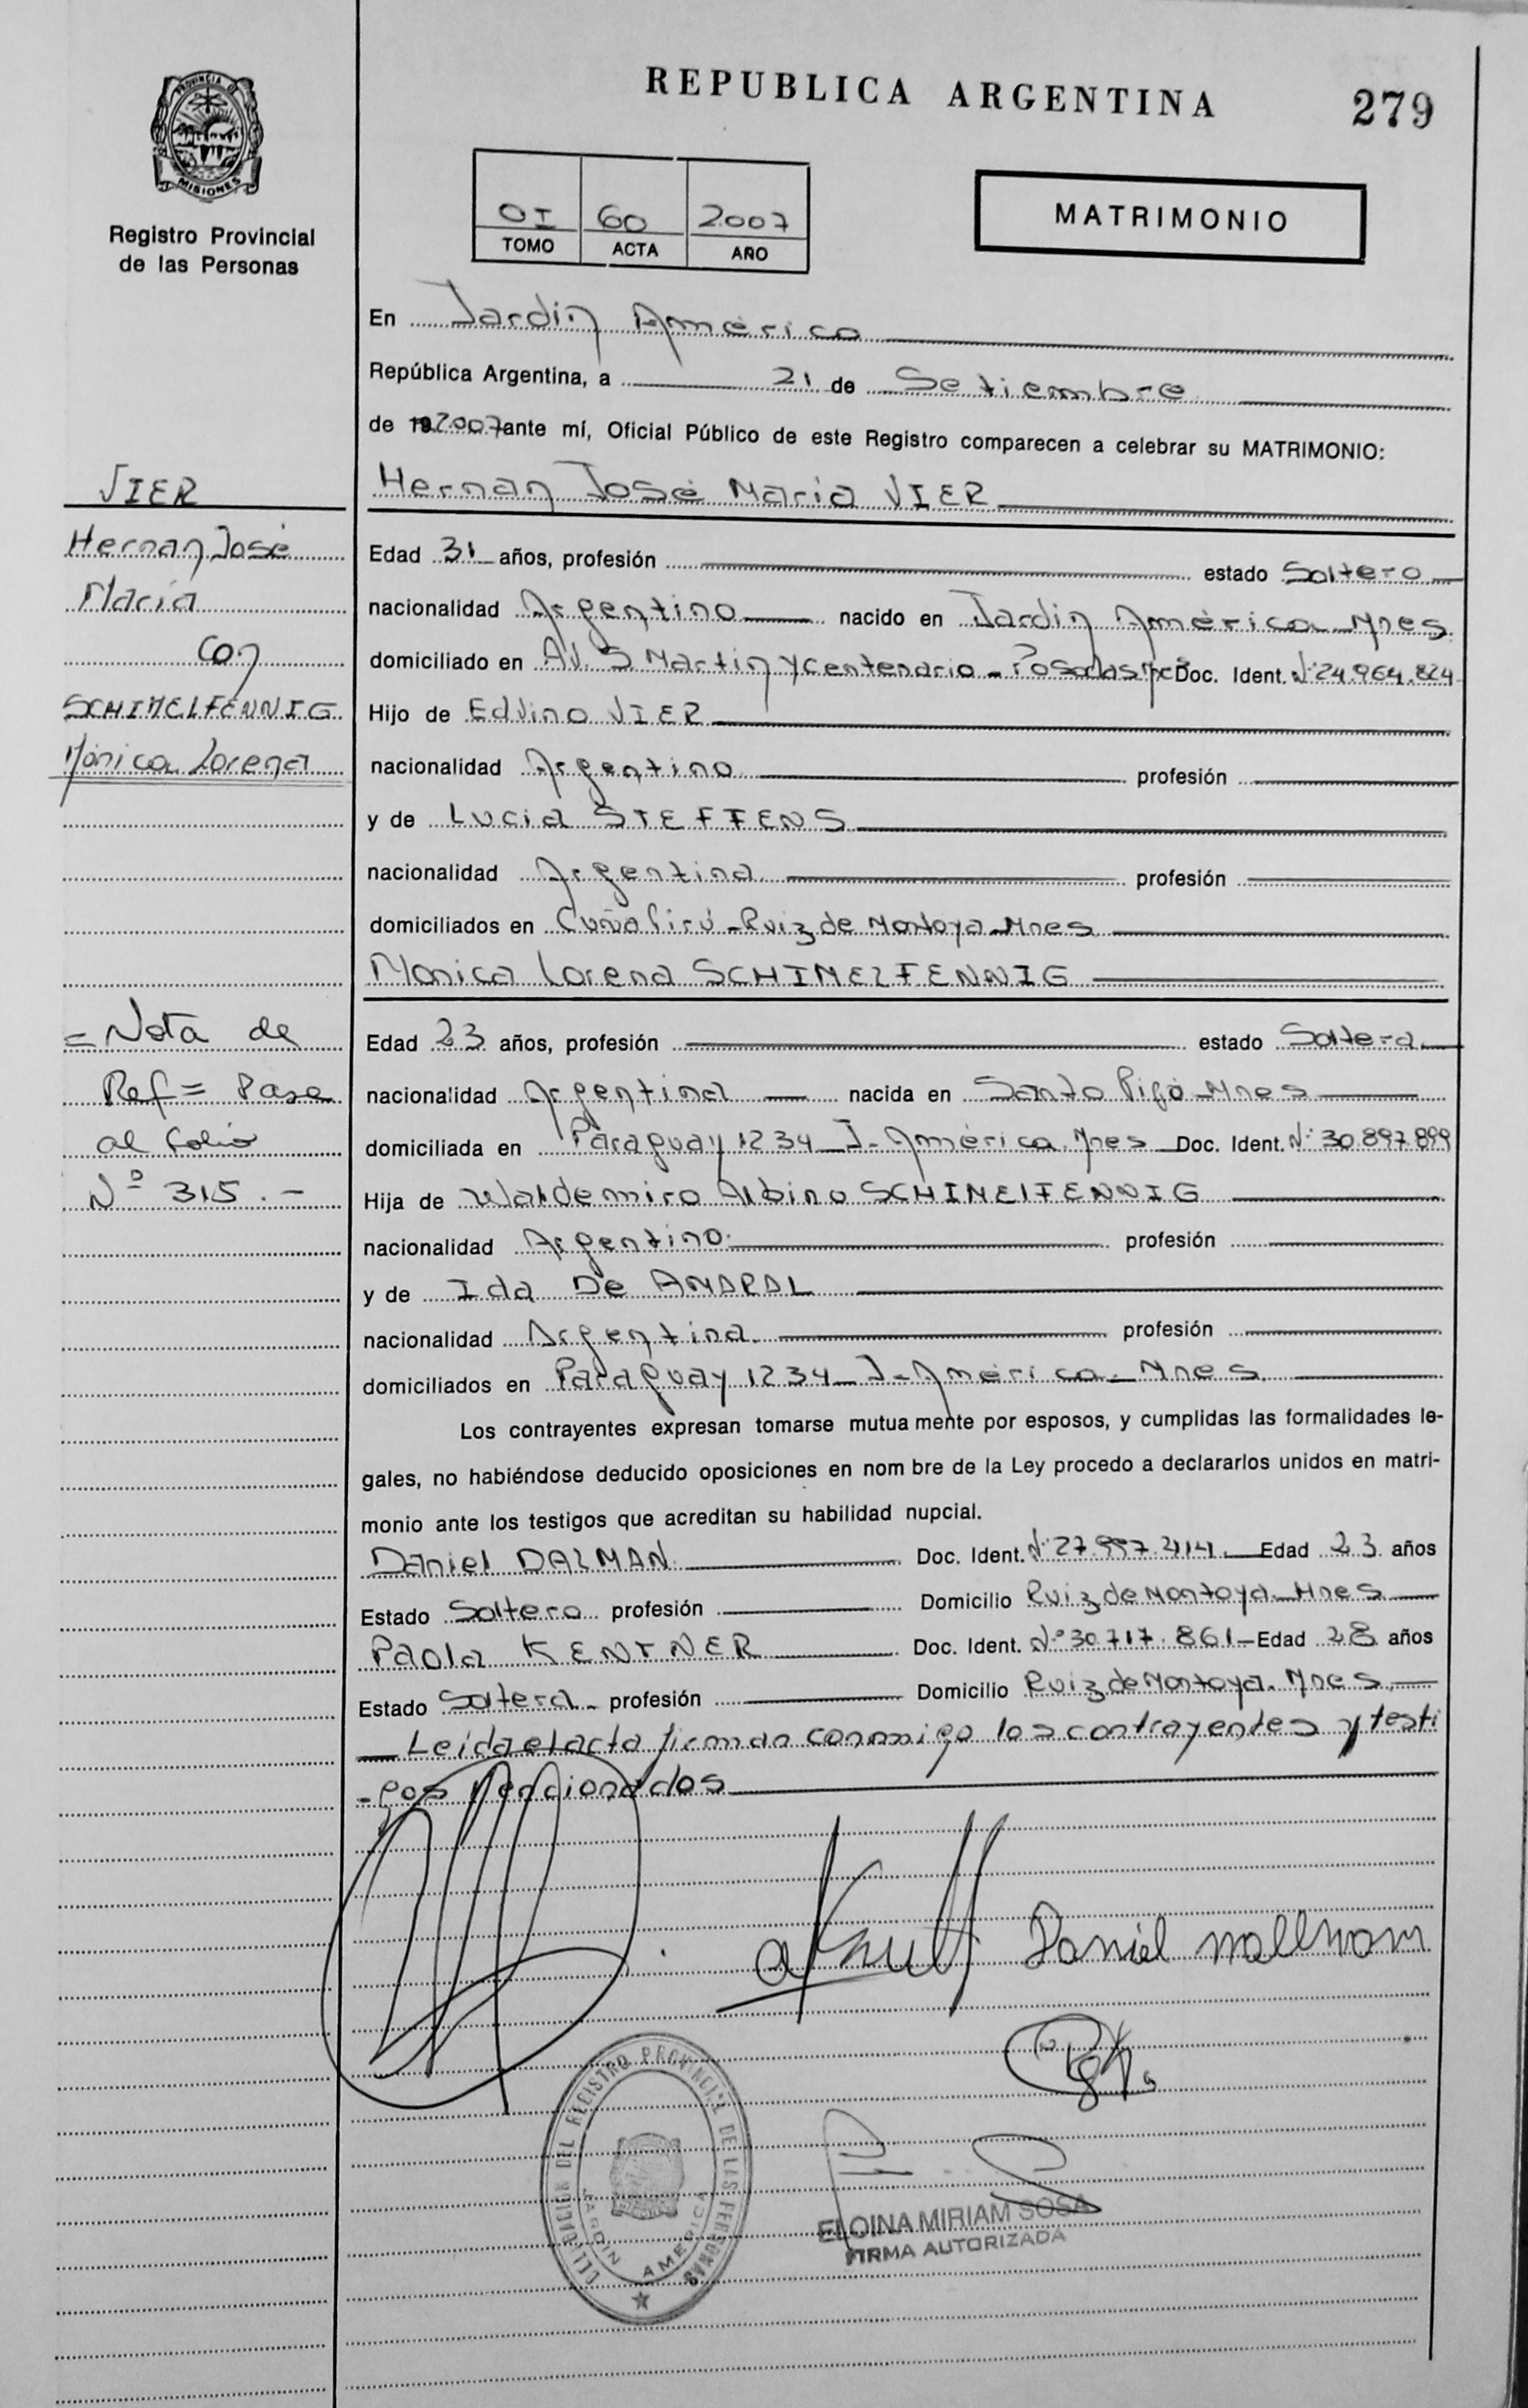 REPUBLICA ARGENTINA
279
PROVINCIA DE
MISIONES
Registro Provincial
de las Personas
OI 60 2007
TOMO ACTA AÑO
MATRIMONIO
En Jardin América
República Argentina, a 21 de Setiembre
de 19 2007 ante mí, Oficial Público de este Registro comparecen a celebrar su MATRIMONIO:
Hernan José Maria VIER
Edad 31 años, profesión estado Soltero
nacionalidad Argentino nacido en Jardin América Mnes.
domiciliado en Av. S Martin y centenario - Posadas Doc. Ident. Nº 24.964.824
Hijo de Edvino VIER
nacionalidad Argentino profesión
y de Lucia STEFFENS
nacionalidad Argentina profesión
domiciliados en Cuña Pirú - Ruiz de Montoya - Mnes
Monica Lorena SCHIMELFENNIG
Edad 23 años, profesión estado Soltera
nacionalidad Argentina nacida en Santo Pipó - Mnes
domiciliada en Paraguay 1234 J. América Mnes Doc. Ident. Nº 30.897.899
Hija de Waldemiro Albino SCHIMELFENNIG
nacionalidad Argentino profesión
y de Ida De AMARAL
nacionalidad Argentina profesión
domiciliados en Paraguay 1234 J - América - Mnes
Los contrayentes expresan tomarse mutua mente por esposos, y cumplidas las formalidades le-
gales, no habiéndose deducido oposiciones en nom bre de la Ley procedo a declararlos unidos en matri-
monio ante los testigos que acreditan su habilidad nupcial.
Daniel DALMAN Doc. Ident. Nº 27.997.414 Edad 23 años
Estado Soltero profesión Domicilio Ruiz de Montoya - Mnes
Paola KENTNER Doc. Ident. Nº 30.717.861 - Edad 28 años
Estado Soltera - profesión Domicilio Ruiz de Montoya. Mnes
Leida el acta firman conmigo los contrayentes y testi
-gos mencionados
VIER
Hernan José
Maria
Con
SCHIMELFENNIG
Mónica Lorena
= Nota de
Ref = Pase
al folio
Nº 315.-
Daniel
DELEGACION DEL REGISTRO PROVINCIAL DE LAS PERSONAS
JARDIN AMERICA
ELOINA MIRIAM SOSA
FIRMA AUTORIZADA